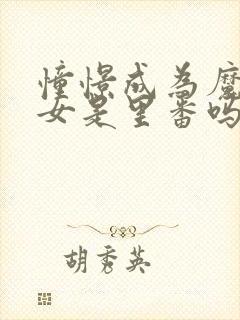 憧憬成为魔
女是里番吗
胡秀英